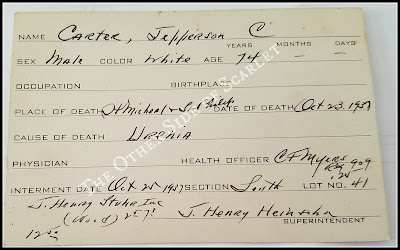 NAME Carter, Jefferson C
YEARS MONTHS DAYS
SEX Male COLOR White AGE 74 — —
OCCUPATION BIRTHPLACE
PLACE OF DEATH DATE OF DEATH Oct 23, 1937
CAUSE OF DEATH Uremia
PHYSICIAN HEALTH OFFICER C F Myers
INTERMENT DATE Oct 25 1937 SECTION South LOT NO. 41
J. Henry Stuhr Inc
(Wood) J. Henry
SUPERINTENDENT
The Other Side of Scarlet